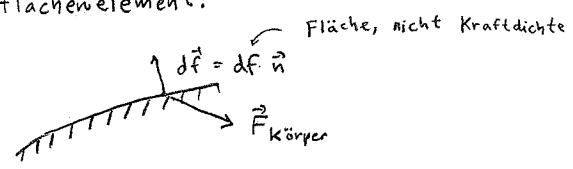 flächenelement.
Fläche, nicht Kraftdichte
df⃗ = df · n⃗
F⃗ Körper